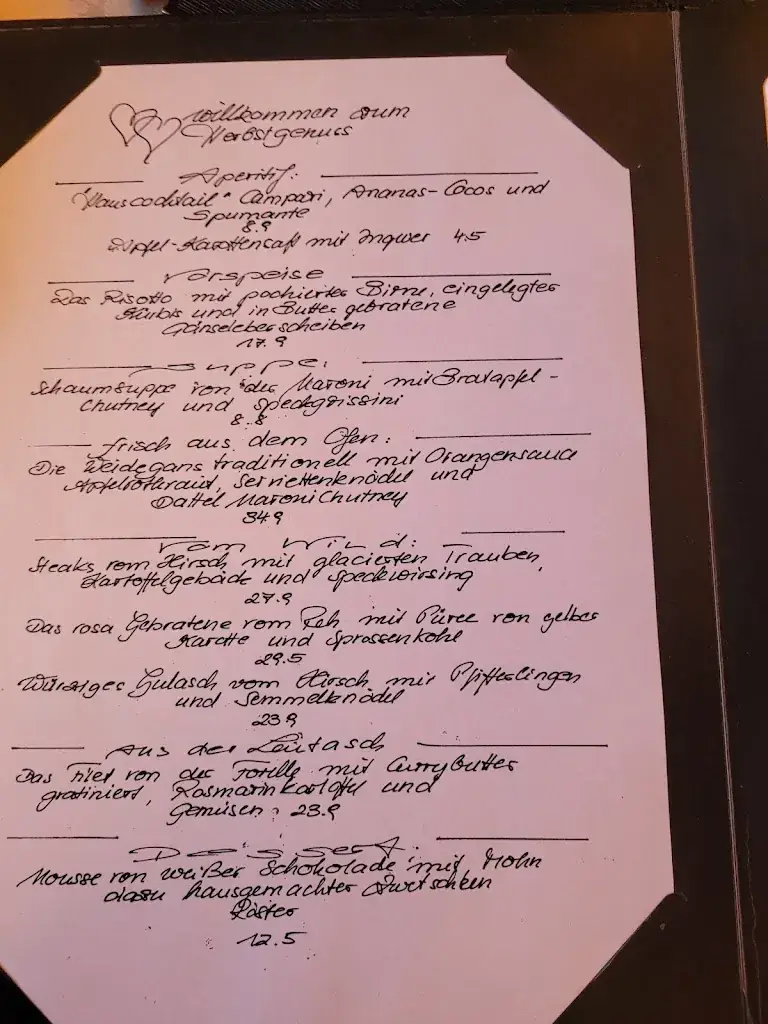 Willkommen zum
Herbstgenuss
Aperitif:
"Hauscocktail" Campari, Ananas-Cocos und
Spumante
8.9
Apfel-Karottensaft mit Ingwer 4.5
Vorspeise
Das Risotto mit pochierter Birne, eingelegter
Kürbis und in Butter gebratene
Gänseleberscheiben
17.9
Suppe:
Schaumsuppe von der Maroni mit Bratapfel-
Chutney und Speckgrissini
8.8
frisch aus dem Ofen:
Die Weidegans traditionell mit Orangensauce
Apfelrotkraut, Serviettenknödel und
Dattel Maroni Chutney
34.9
Vom Wild:
Steaks vom Hirsch mit glacierten Trauben,
Kartoffelgebäck und Speckwirsing
27.9
Das rosa Gebratene vom Reh mit Püree von gelber
Karotte und Sprossenkohl
29.5
Würziges Gulasch vom Hirsch mit Pfifferlingen
und Semmelknödel
23.9
Aus der Leutasch
Das Filet von der Forelle mit Currybutter
gratiniert, Rosmarinkartoffel und
Gemüsen 23.9
Dessert:
Mousse von weißer Schokolade mit Mohn
dazu hausgemachter Zwetschken
Röster
12.5